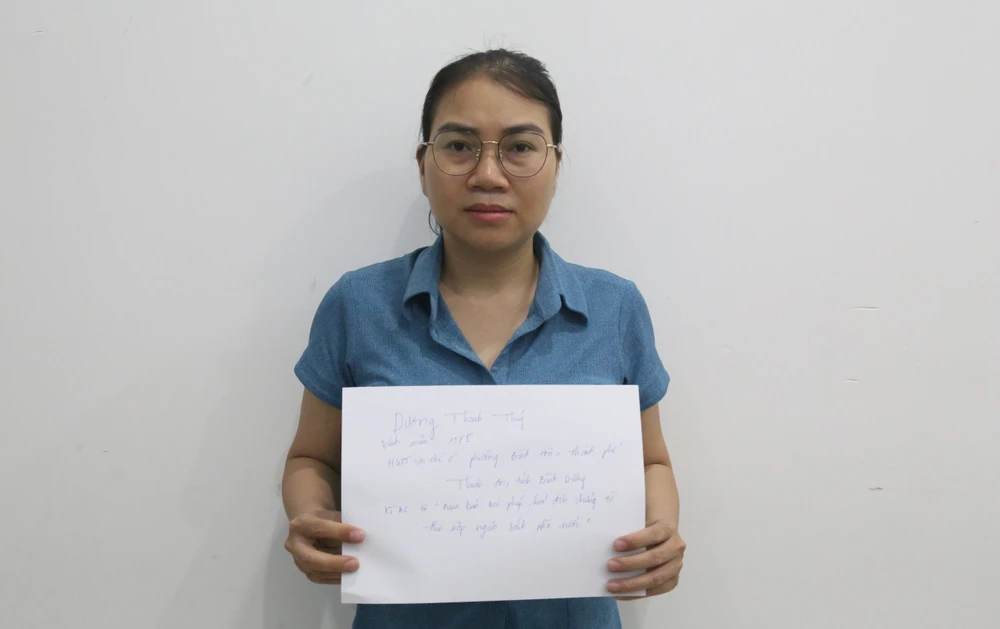 Dương Thanh Thuý
Sinh năm 198
HKTT và chỗ ở phường Bình, thành phố
Thuận An, tỉnh Bình Dương
Kí HC tội "Mua bán trái phép hoá đơn chứng từ
thu nộp ngân sách nhà nước"